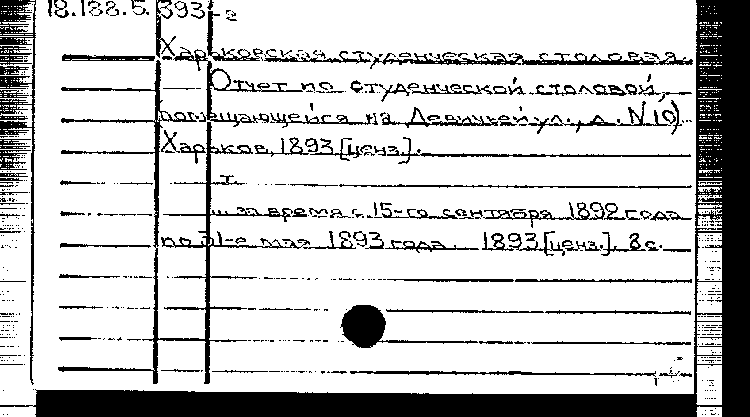 18.188.5.393-2
Харьковская студенческая столовая.
Отчет по студенческой столовой,
помещающейся на Девичьей ул., д. N 10)
Харьков, 1893 [ценз].
т.
... за время с 15-го сентября 1892 года
по 31-е мая 1893 года. 1893 [ценз.]. 8 с.